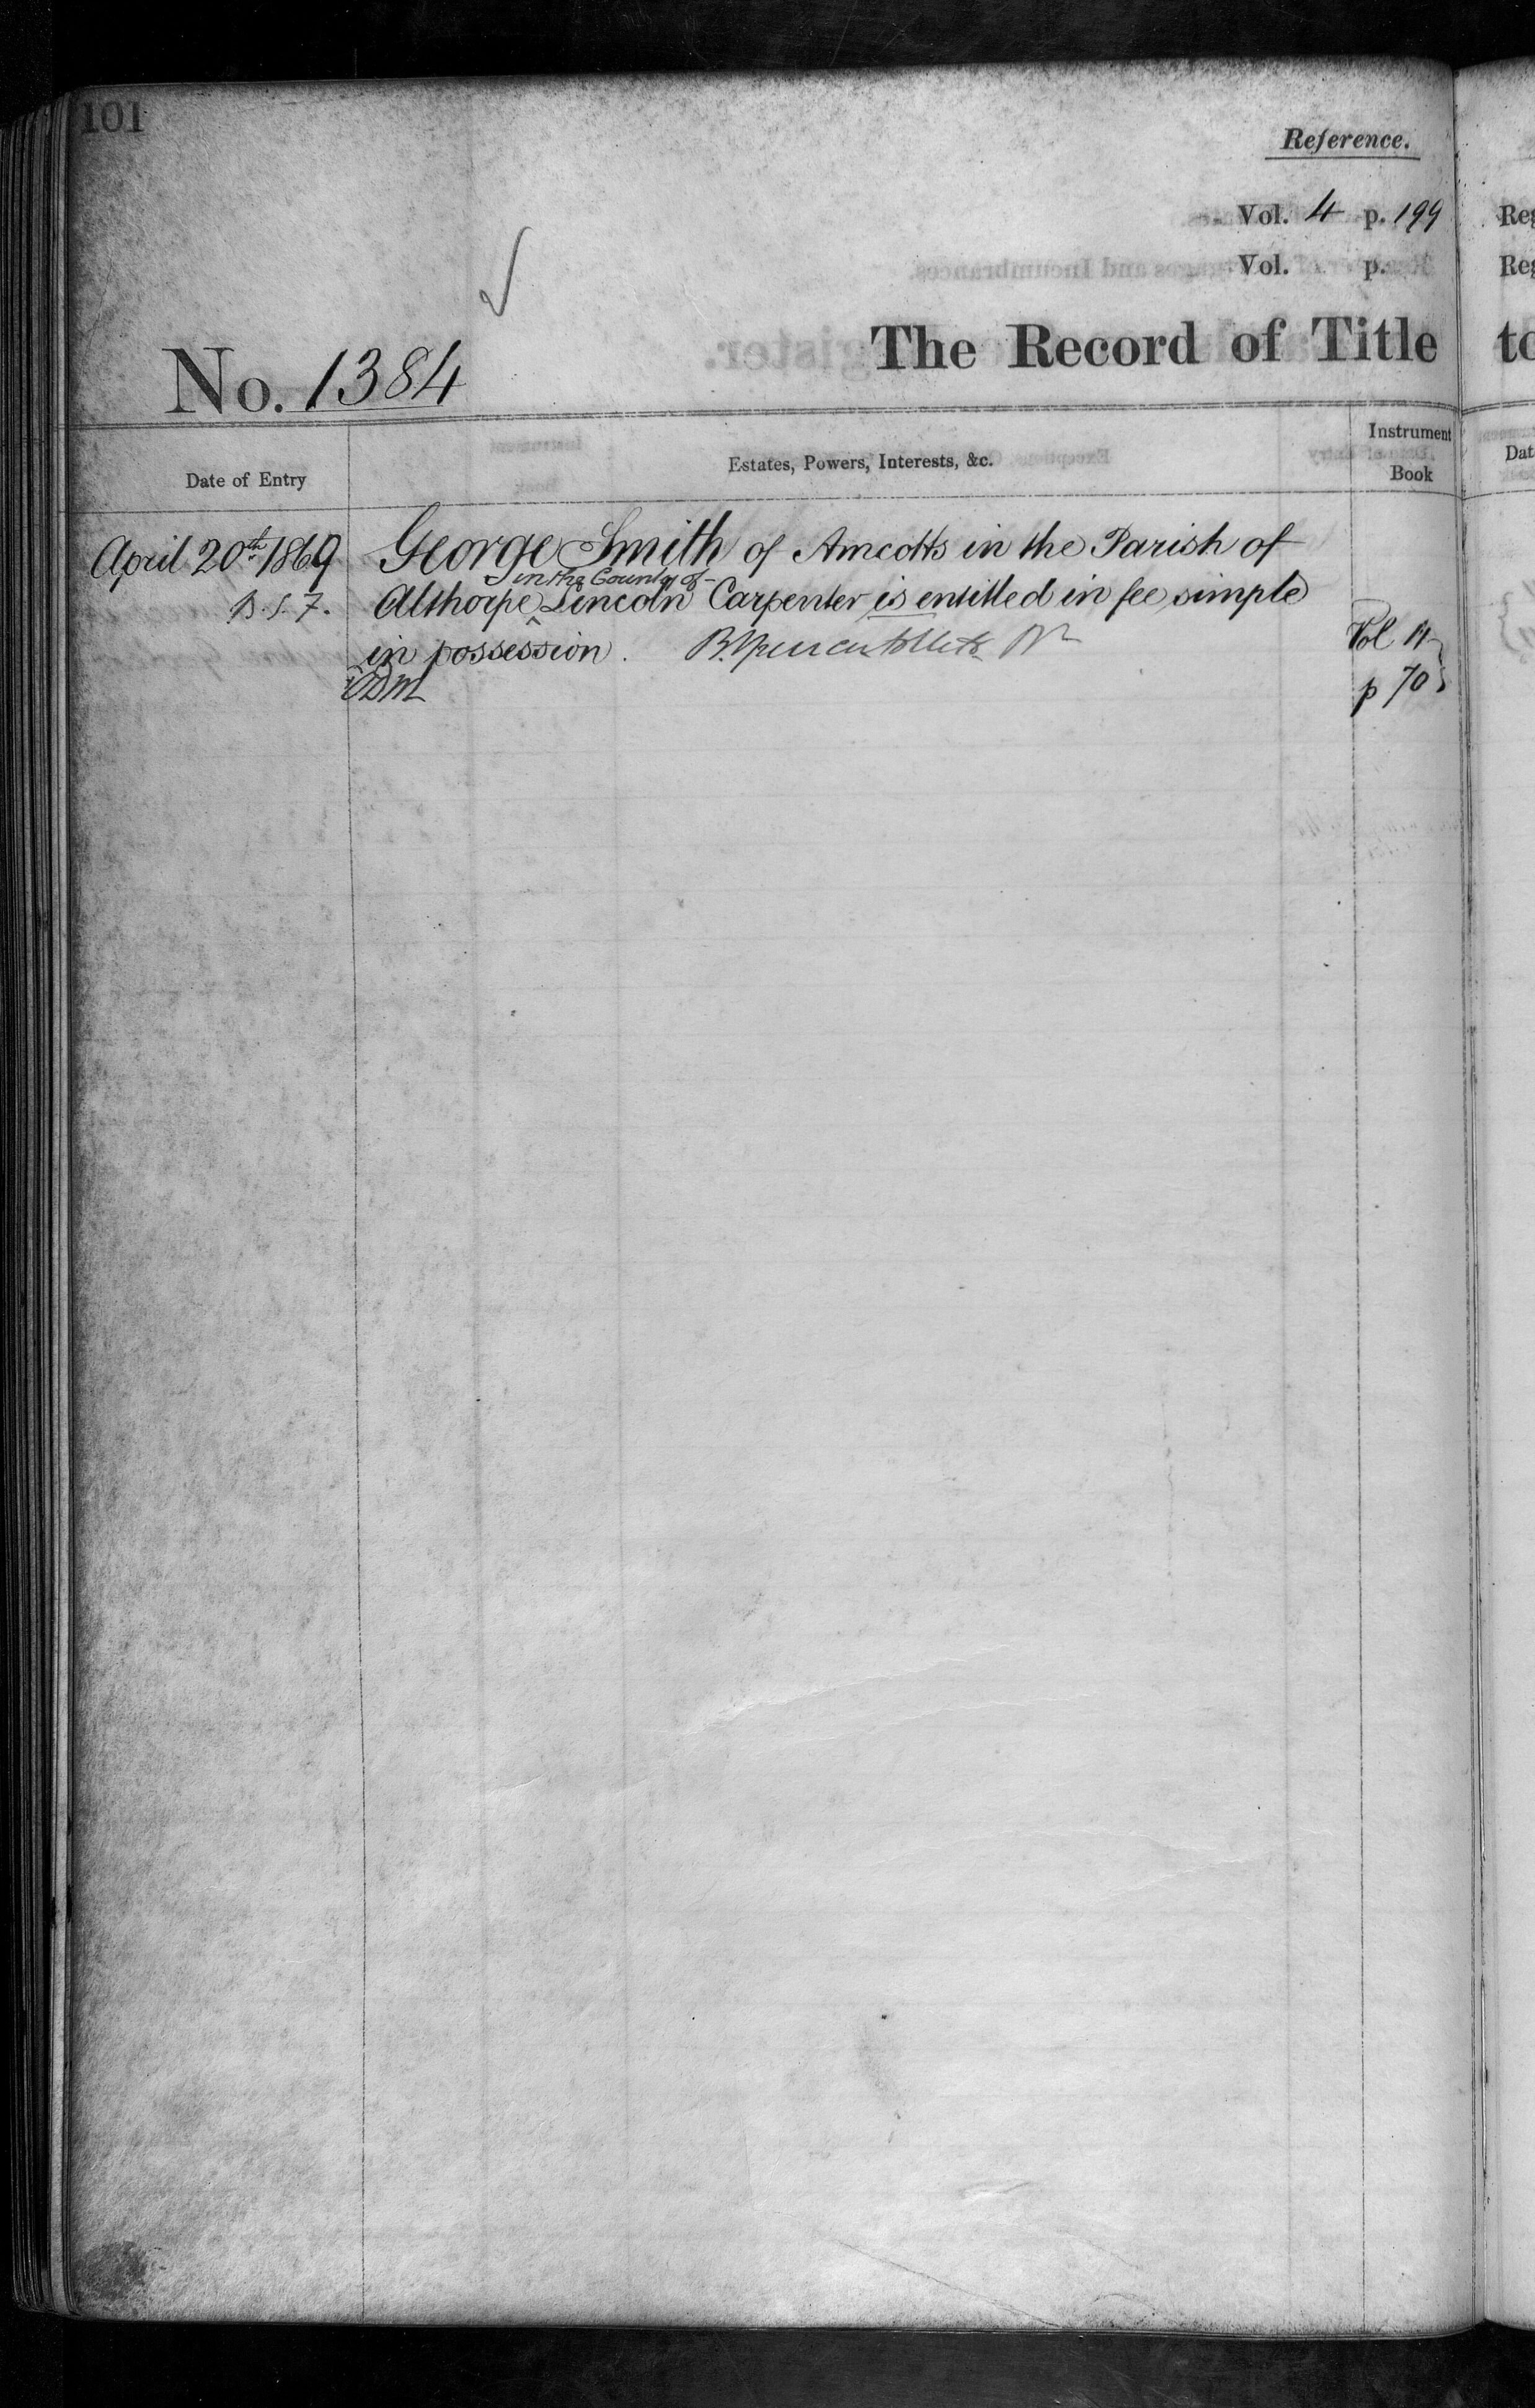 101
Reference.
Vol. 4 p. 199
Vol. p.
The Record of Title
No. 1384
Date of Entry
Estates, Powers, Interests, &c.
Instrument
Book
April 20th 1869
B. S. F.
George Smith of Amcotts in the Parish of
in the County of
Althorpe ^ Lincoln Carpenter is entitled in fee simple
in possession.
Vol 4
p 70
Reg
Reg
to
Dat